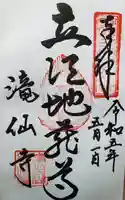 奉拝
令和五年
五月一日
立江地蔵尊
滝仙寺